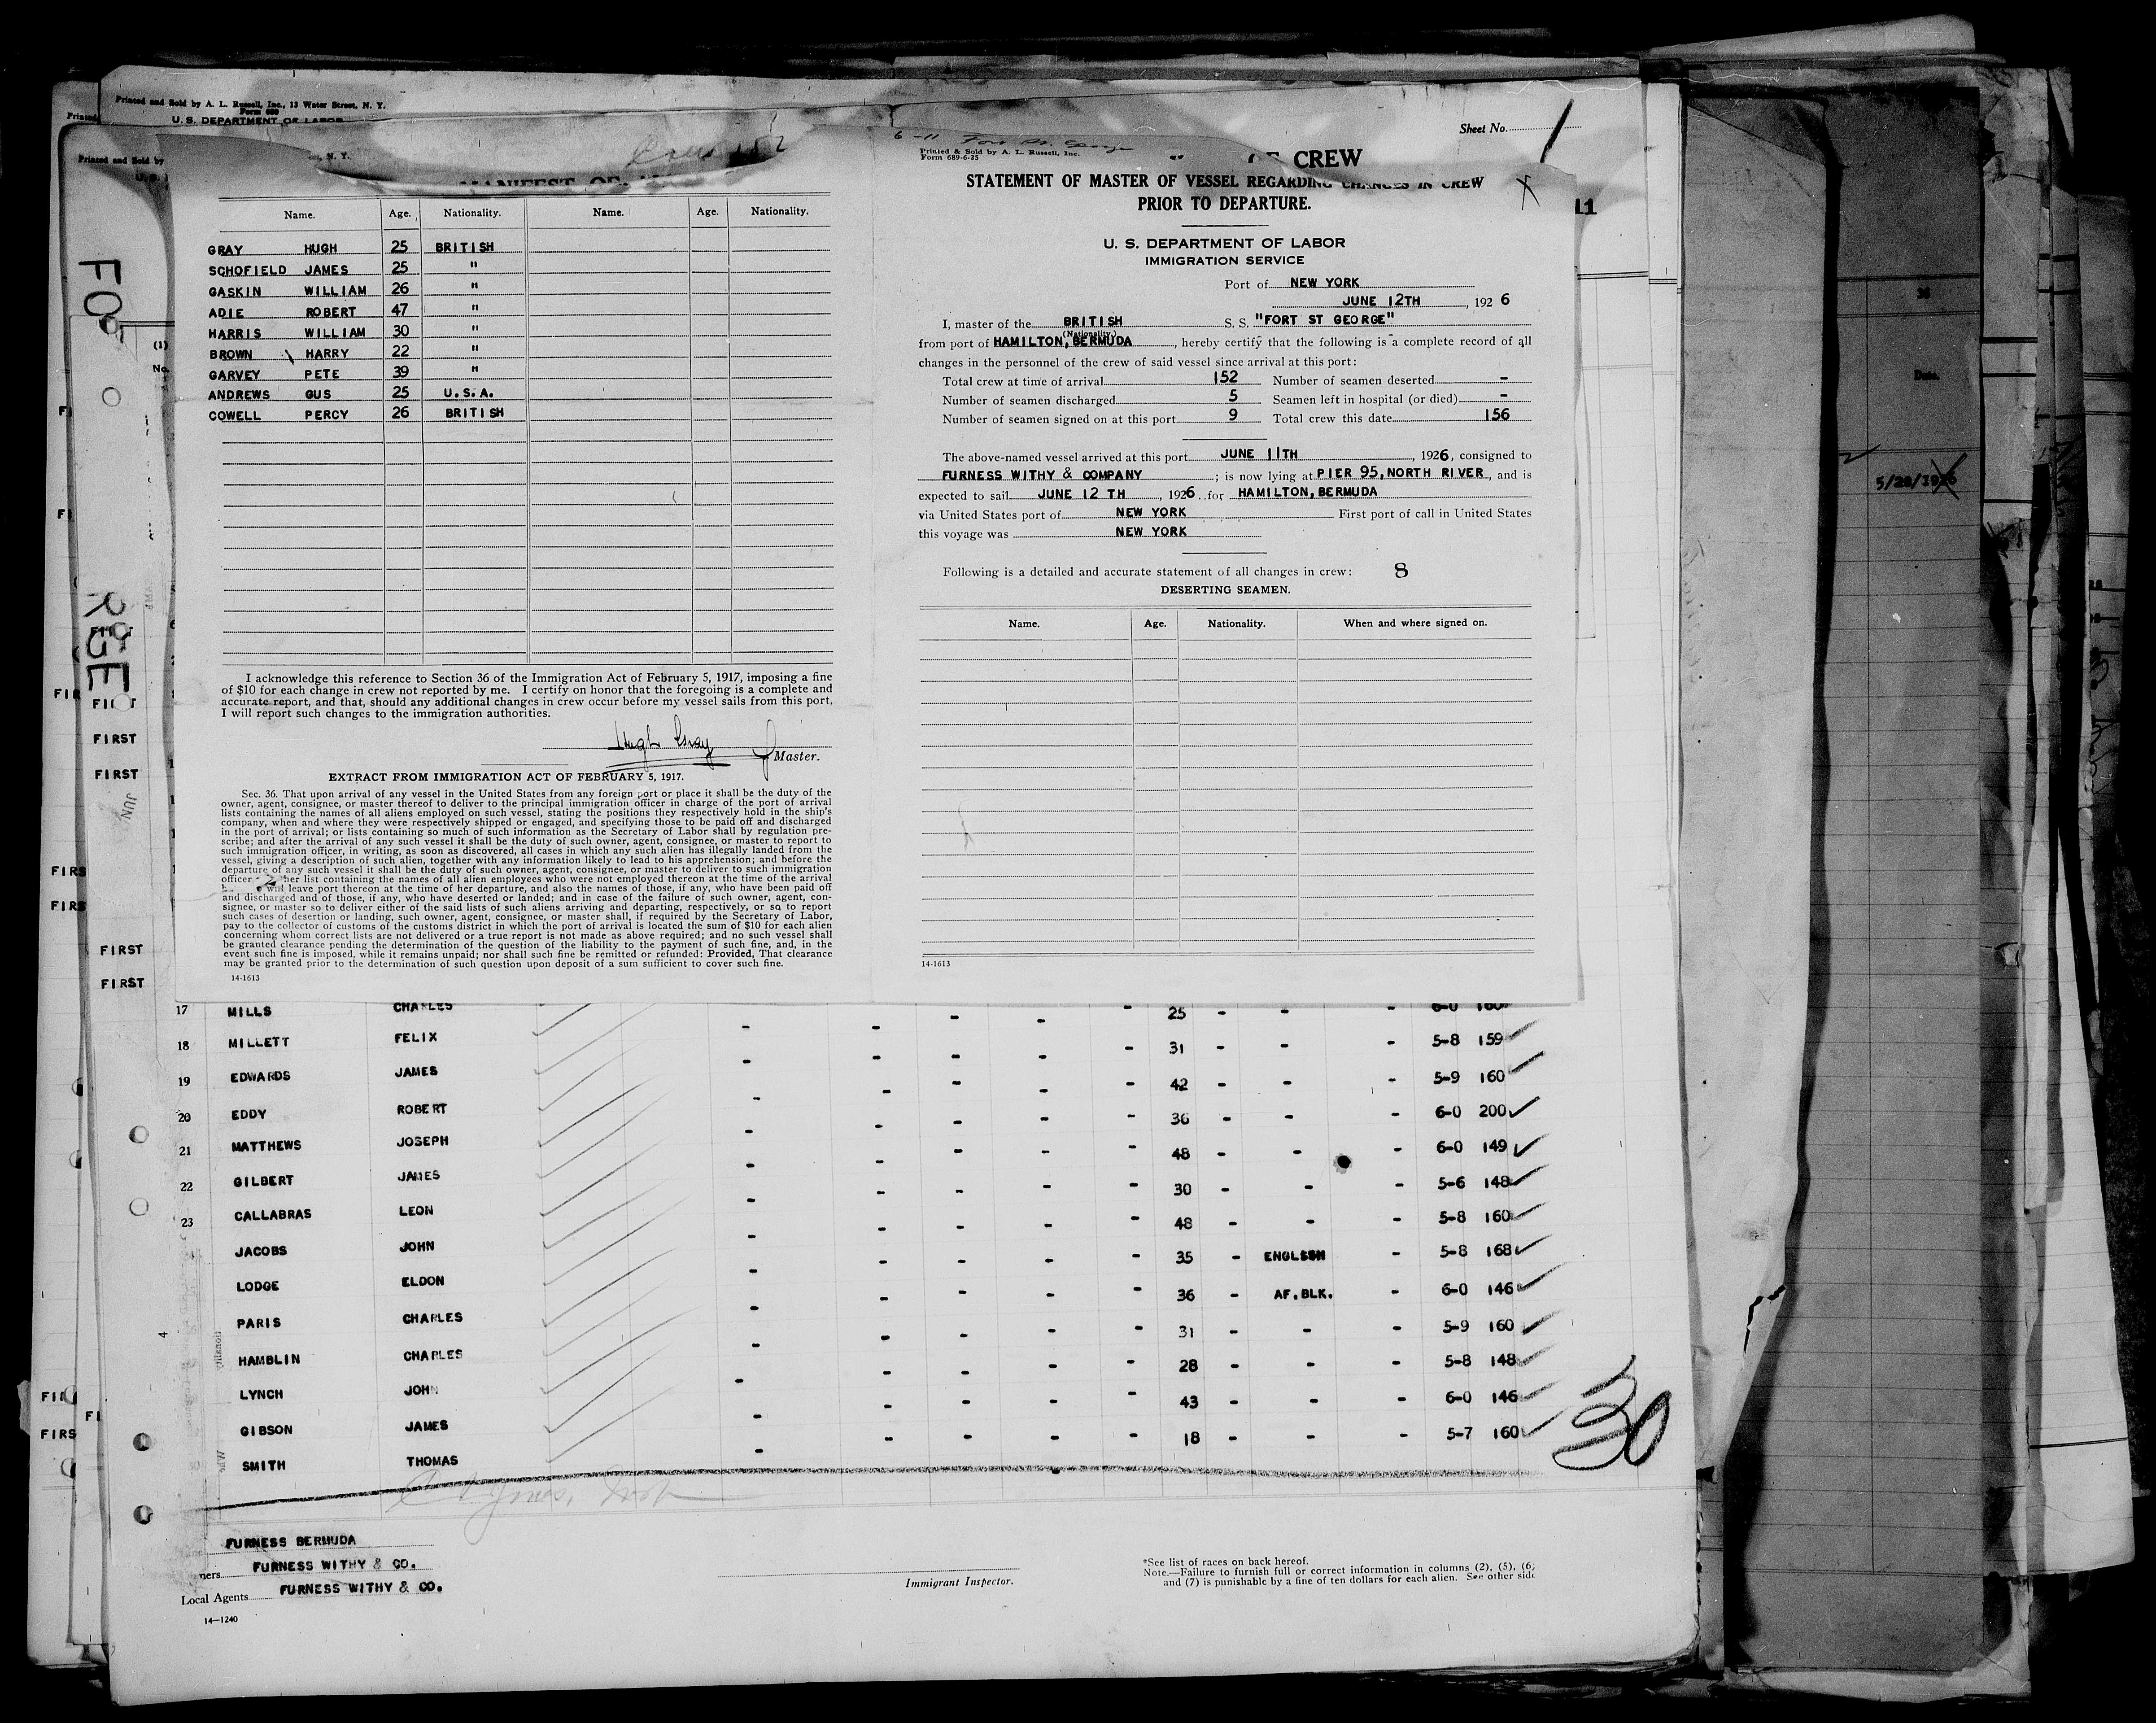 Printed and Sold by A. L. Russell, Inc., 13 Water Street, N. Y.
Form 689
U. S. DEPARTMENT OF LABOR
Printed and Sold by
, N. Y.
MANIFEST OF
Name. Age. Nationality. Name. Age. Nationality.
GRAY HUGH 25 BRITISH
SCHOFIELD JAMES 25 "
GASKIN WILLIAM 26 "
ADIE ROBERT 47 "
HARRIS WILLIAM 30 "
BROWN HARRY 22 "
GARVEY PETE 39 "
ANDREWS GUS 25 U.S.A.
COWELL PERCY 26 BRITISH
I acknowledge this reference to Section 36 of the Immigration Act of February 5, 1917, imposing a fine
of $10 for each change in crew not reported by me. I certify on honor that the foregoing is a complete and
accurate report, and that, should any additional changes in crew occur before my vessel sails from this port,
I will report such changes to the immigration authorities.
Hugh Gray
Master.
EXTRACT FROM IMMIGRATION ACT OF FEBRUARY 5, 1917.
Sec. 36. That upon arrival of any vessel in the United States from any foreign port or place it shall be the duty of the
owner, agent, consignee, or master thereof to deliver to the principal immigration officer in charge of the port of arrival
lists containing the names of all aliens employed on such vessel, stating the positions they respectively hold in the ship's
company, when and where they were respectively shipped or engaged, and specifying those to be paid off and discharged
in the port of arrival; or lists containing so much of such information as the Secretary of Labor shall by regulation pre-
scribe; and after the arrival of any such vessel it shall be the duty of such owner, agent, consignee, or master to report to
such immigration officer, in writing, as soon as discovered, all cases in which any such alien has illegally landed from the
vessel, giving a description of such alien, together with any information likely to lead to his apprehension; and before the
departure of any such vessel it shall be the duty of such owner, agent, consignee, or master to deliver to such immigration
officer her list containing the names of all alien employees who were not employed thereon at the time of the arrival
will leave port thereon at the time of her departure, and also the names of those, if any, who have been paid off
and discharged and of those, if any, who have deserted or landed; and in case of the failure of such owner, agent, con-
signee, or master so to deliver either of the said lists of such aliens arriving and departing, respectively, or so to report
such cases of desertion or landing, such owner, agent, consignee, or master shall, if required by the Secretary of Labor,
pay to the collector of customs of the customs district in which the port of arrival is located the sum of $10 for each alien
concerning whom correct lists are not delivered or a true report is not made as above required; and no such vessel shall
be granted clearance pending the determination of the question of the liability to the payment of such fine, and, in the
event such fine is imposed, while it remains unpaid; nor shall such fine be remitted or refunded: Provided, That clearance
may be granted prior to the determination of such question upon deposit of a sum sufficient to cover such fine.
14-1613
6-11 Fort St. George
Printed & Sold by A. L. Russell, Inc.
Form 689-6-25
Sheet No. 1
CREW
11
STATEMENT OF MASTER OF VESSEL REGARDING CHANGES IN CREW
PRIOR TO DEPARTURE.
U. S. DEPARTMENT OF LABOR
IMMIGRATION SERVICE
Port of NEW YORK
JUNE 12TH, 1926
I, master of the BRITISH S. S. "FORT ST GEORGE"
(Nationality)
from port of HAMILTON, BERMUDA, hereby certify that the following is a complete record of all
changes in the personnel of the crew of said vessel since arrival at this port:
Total crew at time of arrival 152 Number of seamen deserted -
Number of seamen discharged 5 Seamen left in hospital (or died) -
Number of seamen signed on at this port 9 Total crew this date 156
The above-named vessel arrived at this port JUNE 11TH, 1926, consigned to
FURNESS WITHY & COMPANY; is now lying at PIER 95, NORTH RIVER, and is
expected to sail JUNE 12 TH, 1926, for HAMILTON, BERMUDA
via United States port of NEW YORK First port of call in United States
this voyage was NEW YORK
Following is a detailed and accurate statement of all changes in crew: 8
DESERTING SEAMEN.
Name. Age. Nationality. When and where signed on.
14-1613
36
Date.
5/28/1926
(1)
No.
FIRST
FIRST
FIRST
FIRST
JUN
17 MILLS CHARLES - 25 - - - 6-0 160
18 MILLETT FELIX - - - - - 31 - - - 5-8 159
19 EDWARDS JAMES - - - - - 42 - - - 5-9 160
20 EDDY ROBERT - - - - - 36 - - - 6-0 200
21 MATTHEWS JOSEPH - - - - - 48 - - - 6-0 149
22 GILBERT JAMES - - - - - 30 - - - 5-6 148
23 CALLABRAS LEON - - - - - 48 - - - 5-8 160
JACOBS JOHN - - - - - 35 - ENGLSSH - 5-8 168
LODGE ELDON - - - - - 36 - AF.BLK. - 6-0 146
PARIS CHARLES - - - - - 31 - - - 5-9 160
HAMBLIN CHARLES - - - - - 28 - - - 5-8 148
LYNCH JOHN - - - - - 43 - - - 6-0 146
GIBSON JAMES - - - - - 18 - - - 5-7 160
SMITH THOMAS
30
FURNESS BERMUDA
ners FURNESS WITHY & CO.
Local Agents FURNESS WITHY & CO.
14—1240
Immigrant Inspector.
*See list of races on back hereof.
Note.—Failure to furnish full or correct information in columns (2), (5), (6)
and (7) is punishable by a fine of ten dollars for each alien. See other side